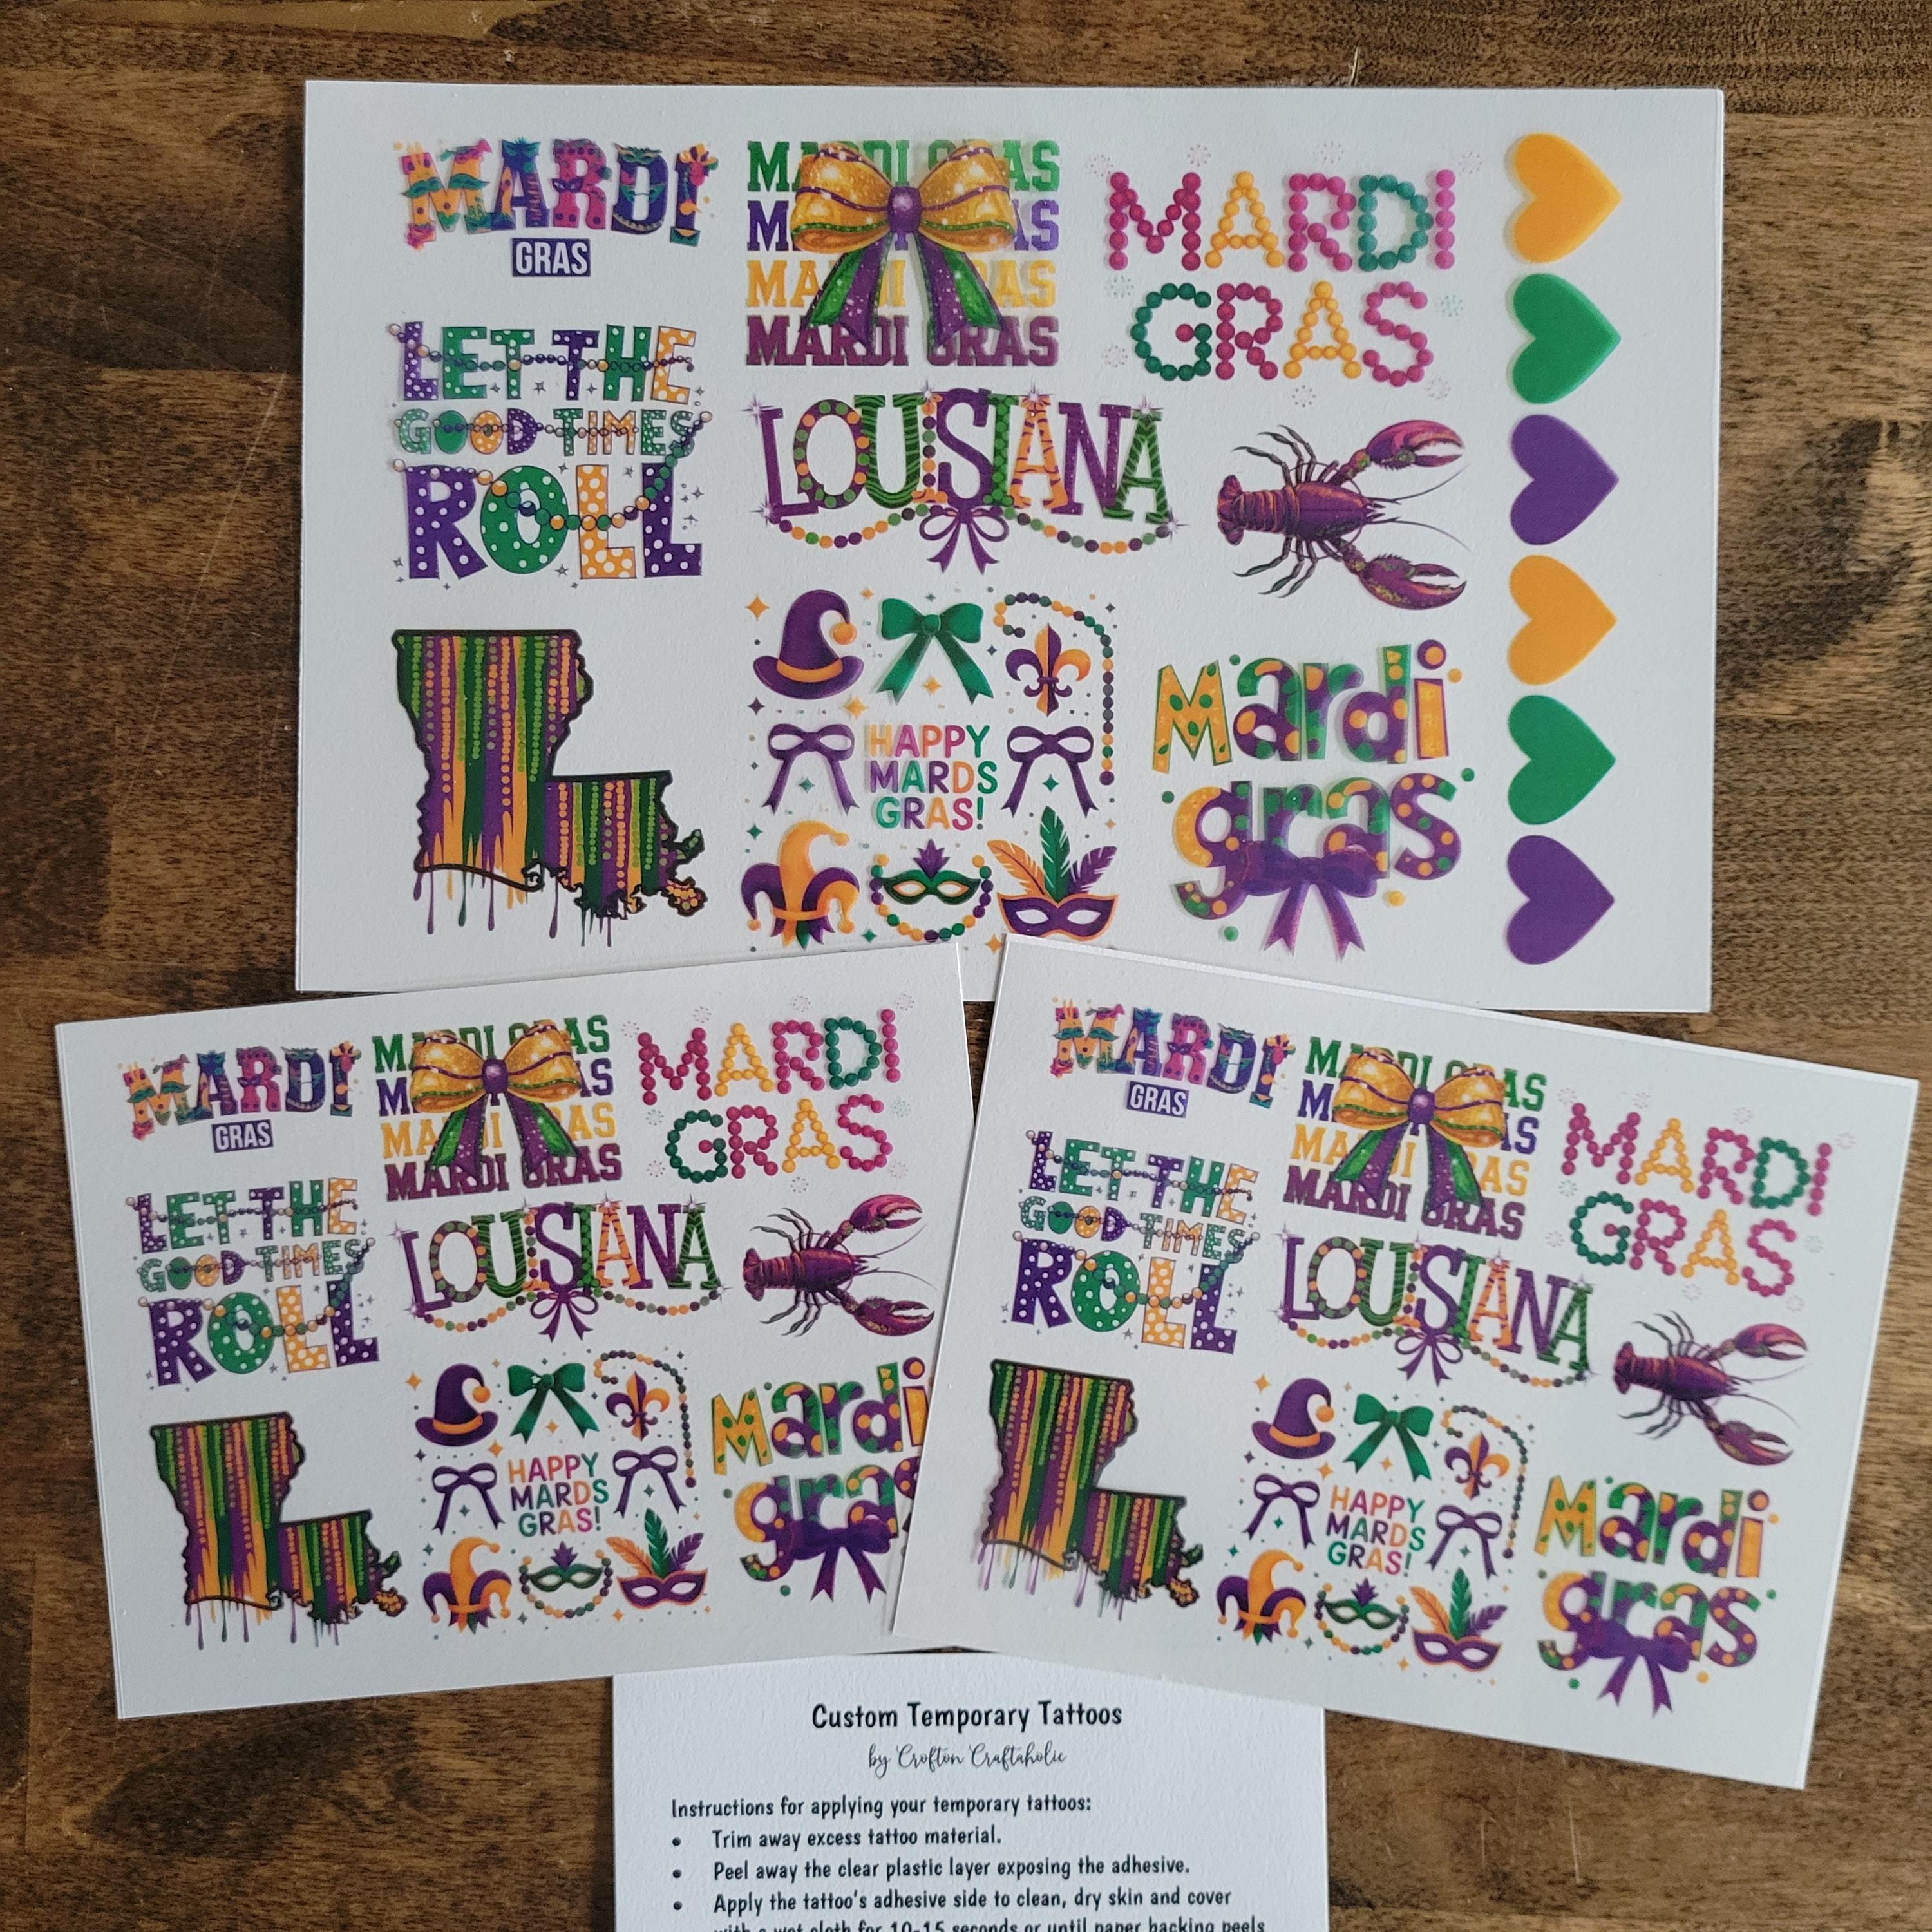 MARDI
GRAS
MARDI GRAS
MARDI GRAS
MARDI GRAS
MARDI GRAS
MARDI
GRAS
LET THE
GOOD TIMES
ROLL
LOUISIANA
HAPPY
MARDS
GRAS!
Mardi
gras
MARDI
GRAS
MARDI GRAS
MARDI GRAS
MARDI GRAS
MARDI GRAS
MARDI
GRAS
LET THE
GOOD TIMES
ROLL
LOUISIANA
HAPPY
MARDS
GRAS!
Mardi
gras
MARDI
GRAS
MARDI GRAS
MARDI GRAS
MARDI GRAS
MARDI GRAS
MARDI
GRAS
LET THE
GOOD TIMES
ROLL
LOUISIANA
HAPPY
MARDS
GRAS!
Mardi
gras
Custom Temporary Tattoos
by Crofton Craftaholic
Instructions for applying your temporary tattoos:
• Trim away excess tattoo material.
• Peel away the clear plastic layer exposing the adhesive.
• Apply the tattoo's adhesive side to clean, dry skin and cover
with a wet cloth for 10-15 seconds or until paper backing peels